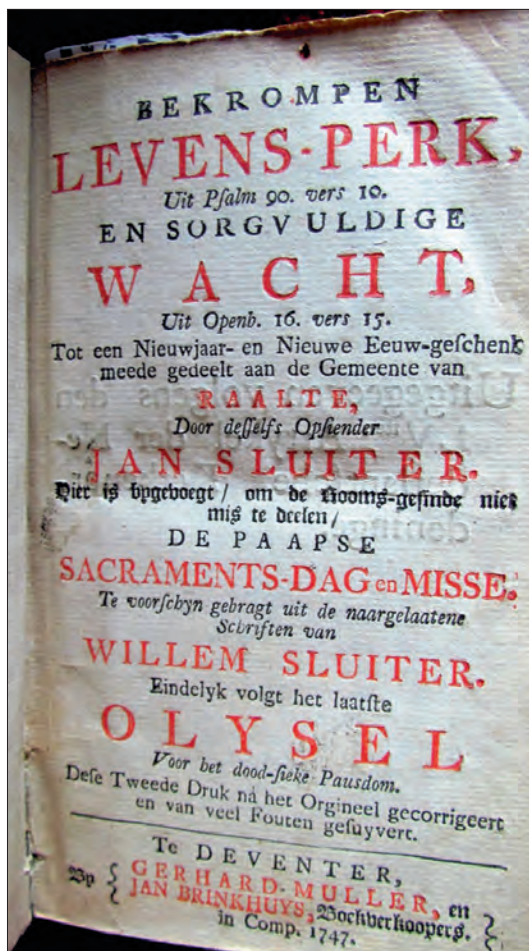 BEKROMPEN
LEVENS-PERK,
Uit Pſalm 90. vers 10.
EN SORGVULDIGE
WACHT,
Uit Openb. 16. vers 15.
Tot een Nieuwjaar- en Nieuwe Eeuw-geſchenk
meede gedeelt aan de Gemeente van
RAALTE,
Door deſſelfs Opſiender
JAN SLUITER.
Hier is bygevoegt / om de Rooms-geſinde niet
mis te deelen /
DE PAAPSE
SACRAMENTS-DAG en MISSE.
Te voorſchyn gebragt uit de naargelaatene
Schriften van
WILLEM SLUITER.
Eindelyk volgt het laatſte
OLYSEL
Voor het dood-ſieke Pausdom.
Deſe Tweede Druk ná het Orgineel gecorrigeert
en van veel Fouten geſuyvert.
Te DEVENTER,
By { GERHARD-MULLER, en }
JAN BRINKHUYS, Boekverkoopers.
in Comp. 1747.